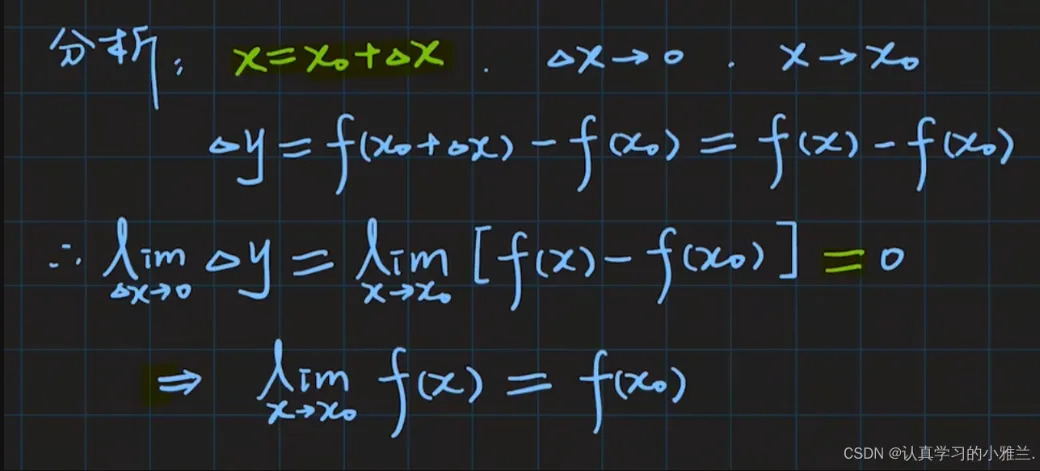 分析: x=x₀+Δx . Δx→0 . x→x₀
Δy=f(x₀+Δx)-f(x₀)=f(x)-f(x₀)
∴ lim Δx→0 Δy = lim x→x₀ [f(x)-f(x₀)] = 0
⇒ lim x→x₀ f(x) = f(x₀)
CSDN @认真学习的小雅兰.